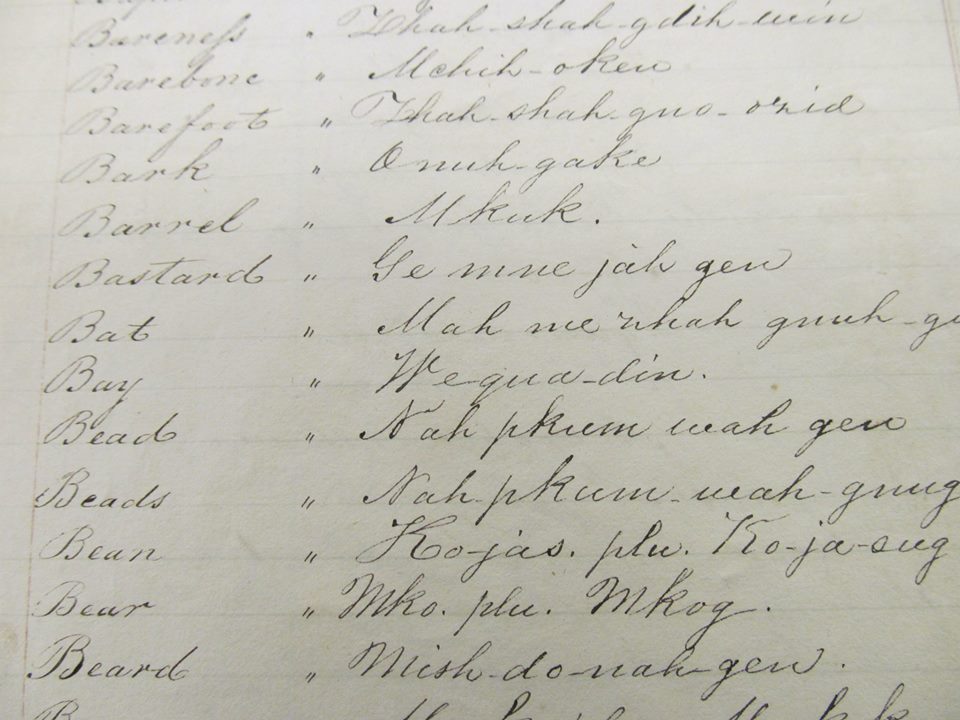 Bareness " Zhah-shah-gdih-win
Barebone " Mchih-oken
Barefoot " Zhah-shah-guo-ozid
Bark " O nuh-gake
Barrel " Mkuk.
Bastard " Ge mne jah gen
Bat " Mah ne zhah gnuh-
Bay " We-qua-din.
Bead " Nah pkum wah gen
Beads " Nah-pkum-wah-gnug
Bean " Ko-jas. plu. Ko-ja-sug
Bear " Mko. plu. Mkog.
Beard " Mish-do-nah-gen.